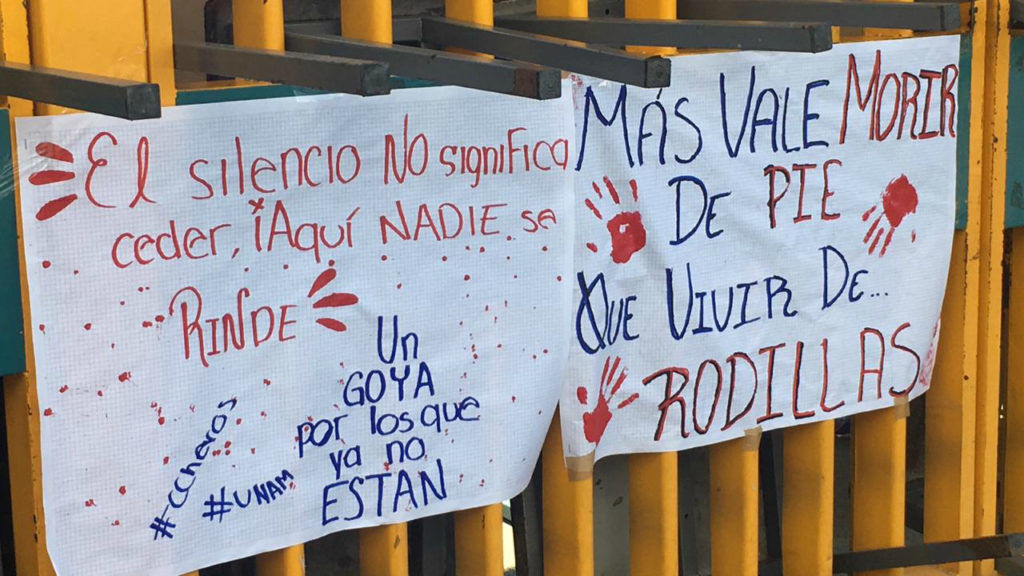 El silencio NO significa
ceder, ¡Aquí NADIE se
RINDE
Un
GOYA
por los que
ya no
ESTAN
#CCHeros
#UNAM
MÁS VALE MORIR
DE PIE
QUE VIVIR DE...
RODILLAS